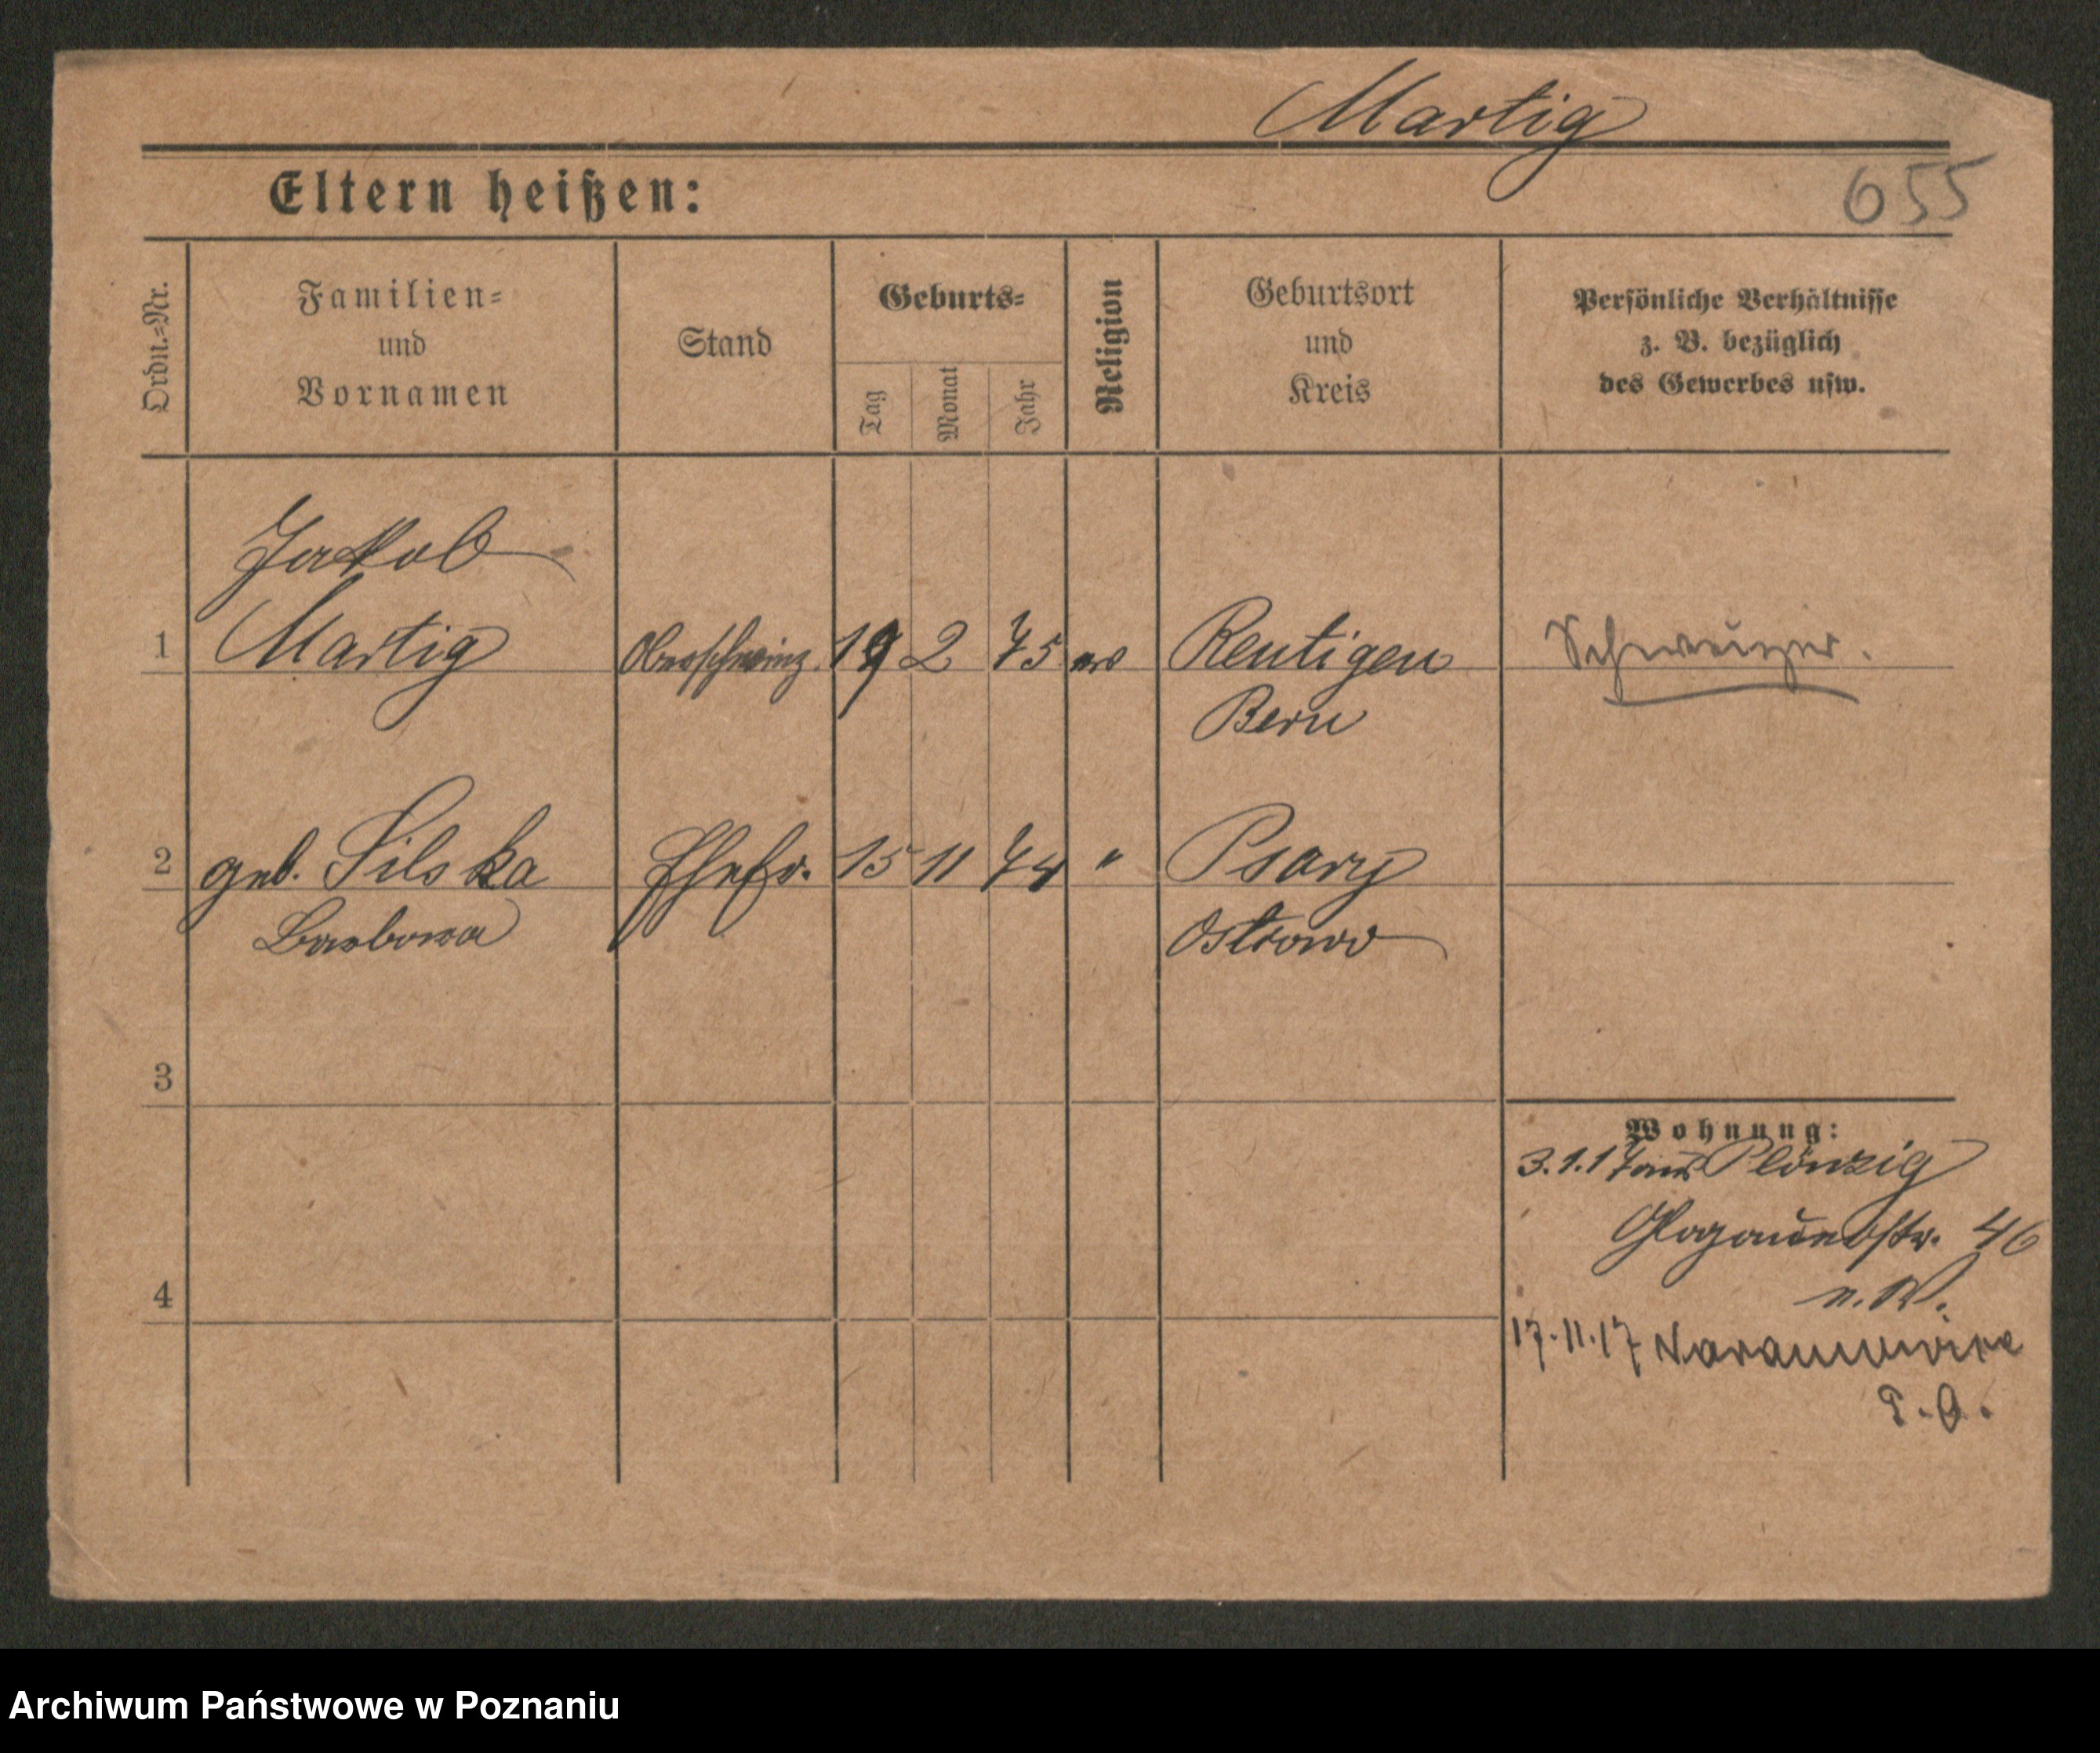 Martig
655
Eltern heißen:
Ordn.-Nr.
Familien-
und
Vornamen
Stand
Geburts-
Tag
Monat
Jahr
Religion
Geburtsort
und
Kreis
Persönliche Verhältnisse
z. B. bezüglich
des Gewerbes usw.
Jakob
1 Martig Oberschweiz. 19 2 75 ev Reutigen Schweizer.
Bern
2 geb. Silska Ehefr. 15 11 74 " Psary
Barbara Ostrowo
3
Wohnung:
3.1.17 aus Plönzig
Glogauerstr. 46
4
17.11.17
Archiwum Państwowe w Poznaniu